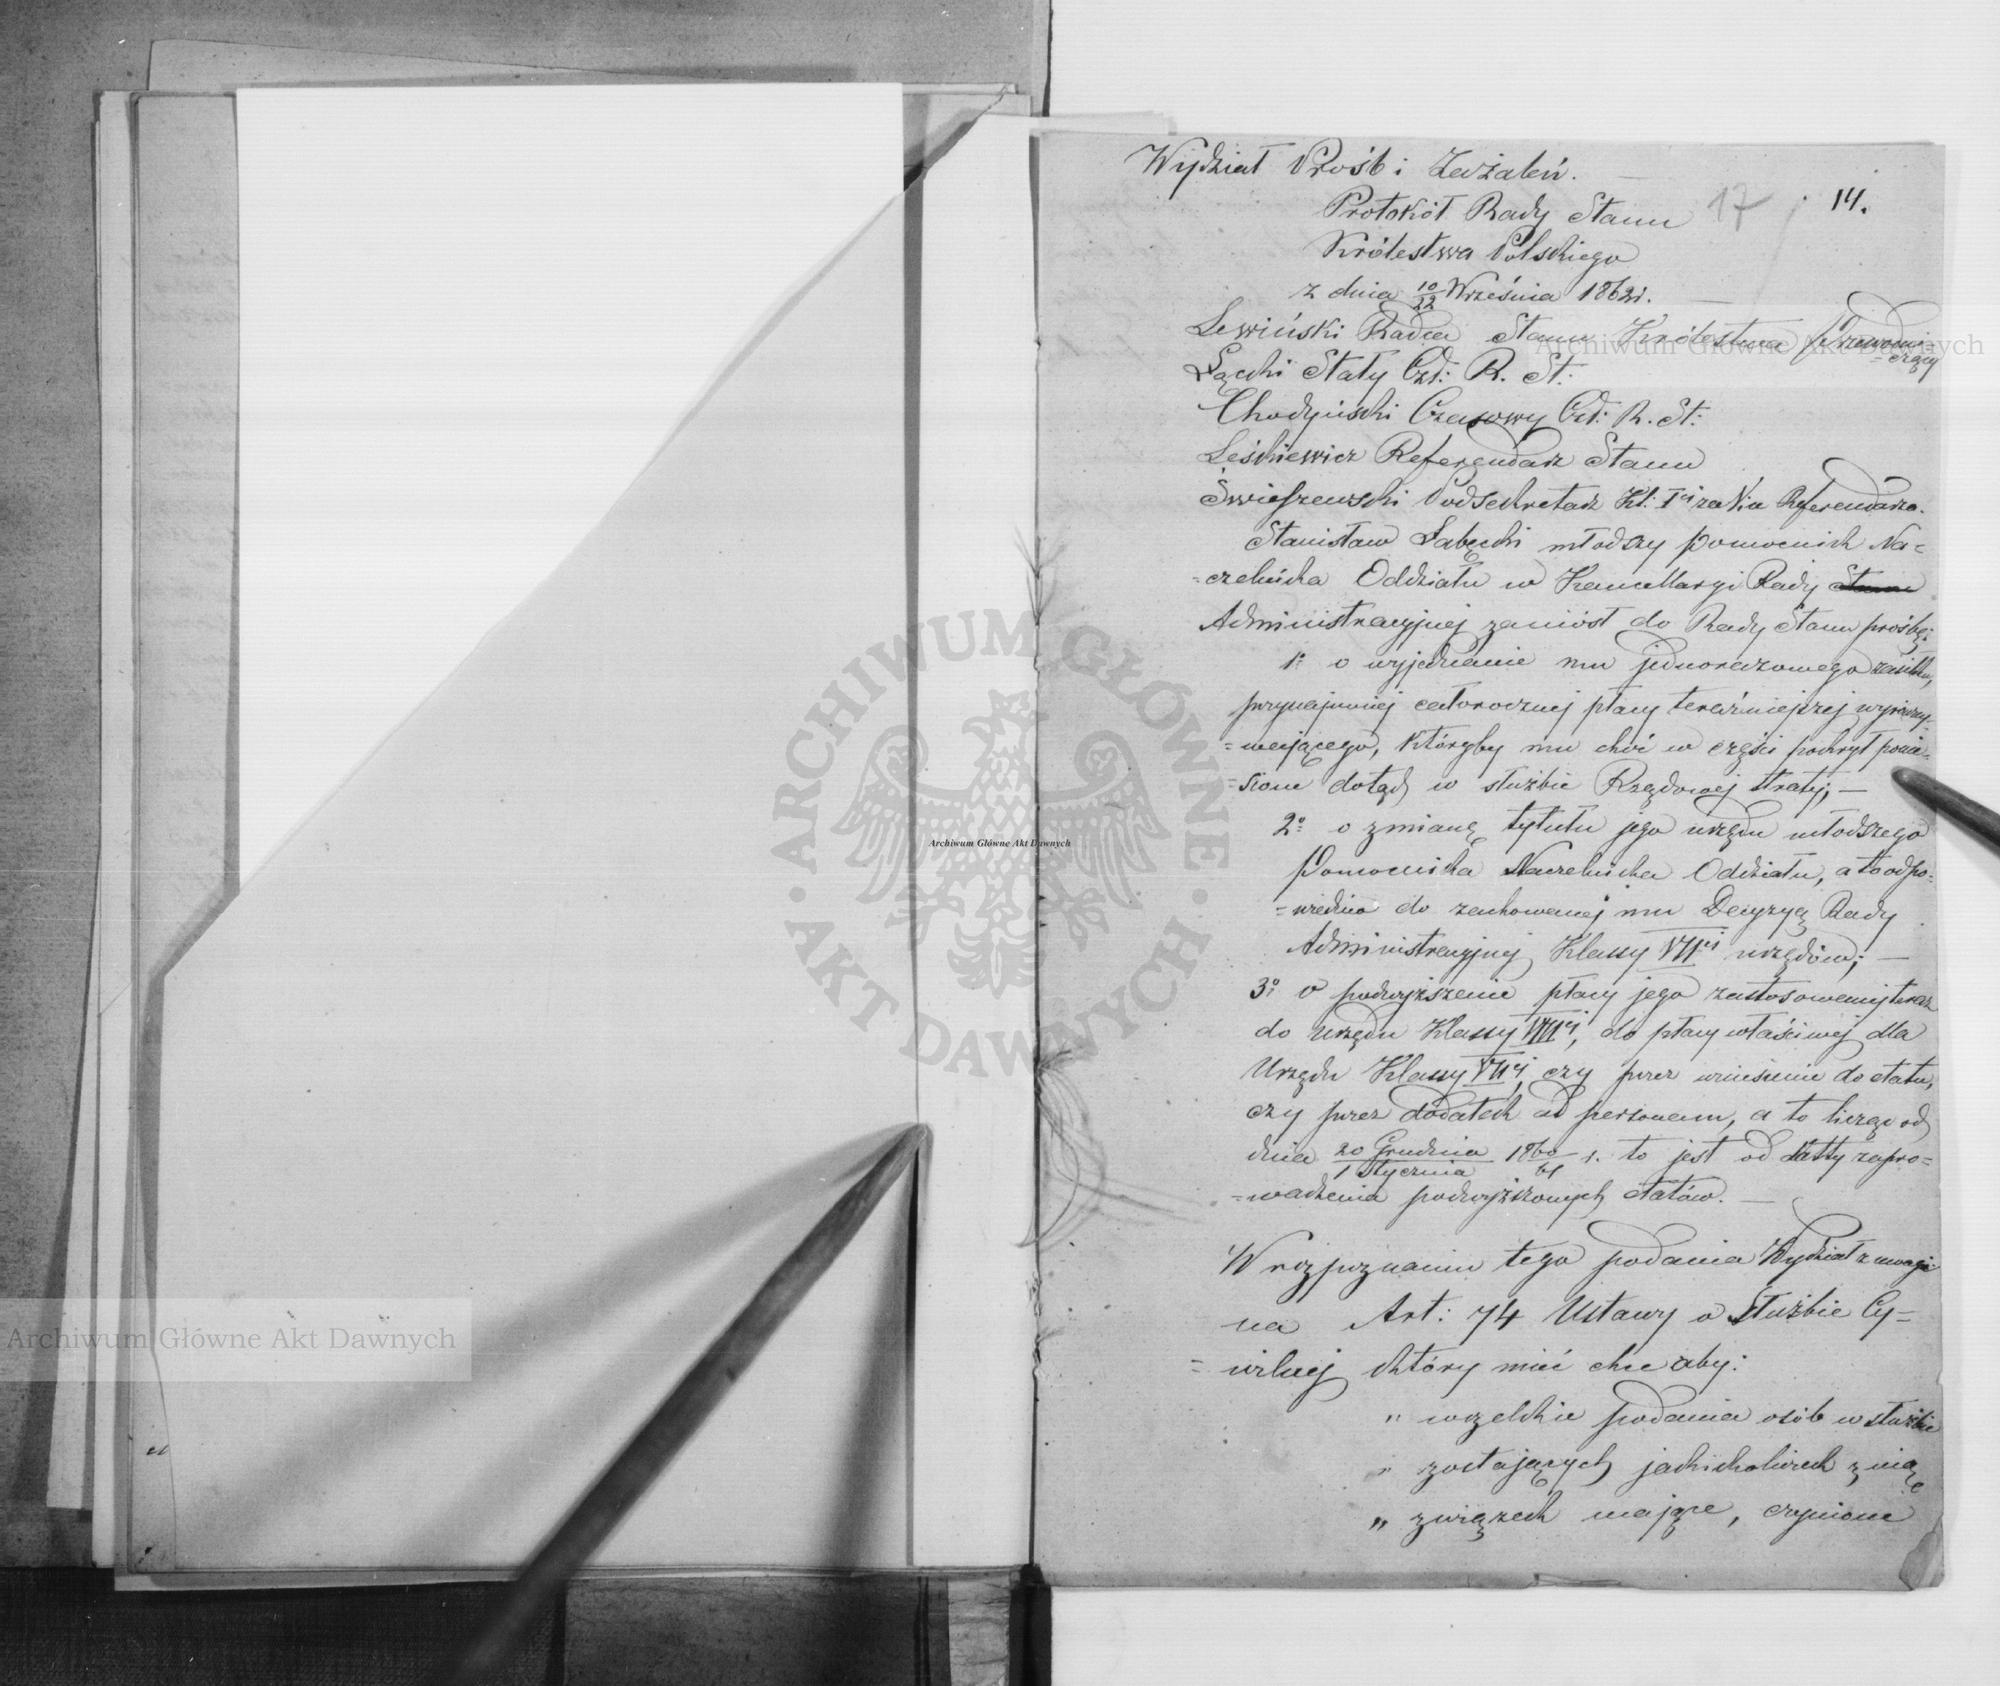 Wydział Próśb i Zażaleń.
17 14.
Protokół Rady Stanu
Królestwa Polskiego
z dnia 10/22 Września 1862 r.
Lewiński Radca Stanu Królestwa Przewodni-
=czący
Łącki Stały Czł: R. St:
Chodyński Czasowy Czł: R. St:
Leśkiewicz Referendarz Stanu
Świeszewski Podsekretarz Kl: I ej za Nia Referendarza.
Stanisław Łabęcki młodszy Pomocnik Na=
=czelnika Oddziału w Kancellaryi Rady Stanu
Administracyjnej zaniósł do Rady Stanu prośbę:
1o o wyjednanie mu jednorazowego zasiłku,
przynajmniej całorocznej płacy teraźniejszej wyrówny-
=wającego, któryby mu choć w części pokrył ponie-
=sione dotąd w służbie Rządowej straty; —
2o o zmianę tytułu jego urzędu młodszego
Pomocnika Naczelnika Oddziału, a to odpo=
=wiednio do zachowanej mu Decyzyą Rady
Administracyjnej Klassy VII ej urzędów; —
3o o podwyższenie płacy jego zastosowanej teraz
do urzędu Klassy VIII ej, do płacy właściwej dla
Urzędu Klassy VII ej, czy przez wniesienie do etatu,
czy przez dodatek ad personam, a to licząc od
dnia 20 Grudnia/1 Stycznia 1860/61 r. to jest od datty zapro=
=wadzenia podwyższonych etatów. —
W rozpoznaniu tego podania Wydział z uwagi
na Art: 74 Ustawy o Służbie Cy=
=wilnej który mieć chce aby:
„ wszelkie podania osób w służbie
„ zostających jakikolwiek z nią
„ związek mające, czynione
Archiwum Główne Akt Dawnych
Archiwum Główne Akt Dawnych
Archiwum Główne Akt Dawnych
ARCHIWUM GŁÓWNE · AKT DAWNYCH ·